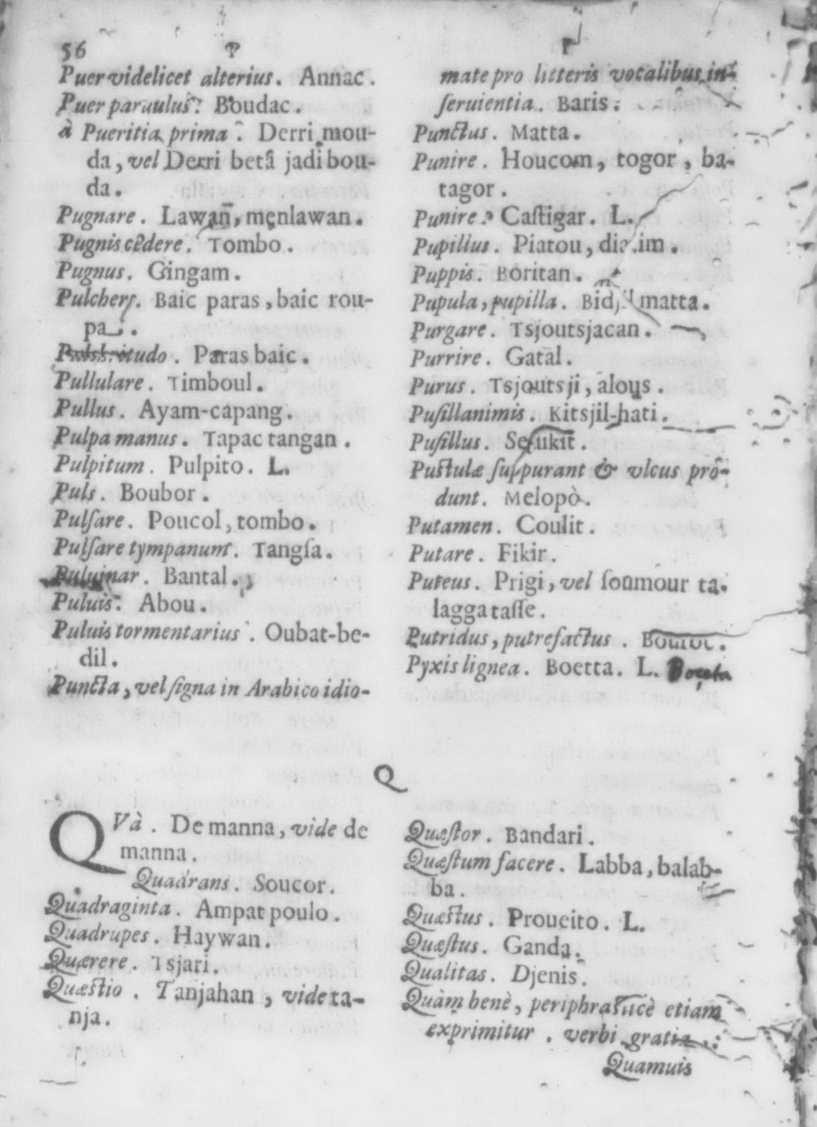 56 P P
Puer videlicet alterius. Annac.
Puer paruulus. Boudac.
à Pueritia prima. Derri mou-
da, vel Derri betâ jadi bou-
da.
Pugnare. Lawañ, męnlawan.
Pugnis cędere. Tombo.
Pugnus. Gingam.
Pulcher. Baic paras, baic rou-
pa.
Pulchritudo. Paras baic.
Pullulare. Timboul.
Pullus. Ayam-capang.
Pulpa manus. Tapac tangan.
Pulpitum. Pulpito. L.
Puls. Boubor.
Pulſare. Poucol, tombo.
Pulſare tympanum. Tangſa.
Puluinar. Bantal.
Puluis. Abou.
Puluis tormentarius. Oubat-be-
dil.
Puncta, vel ſigna in Arabico idio-
mate pro litteris vocalibus in-
ſeruientia. Baris.
Punctus. Matta.
Punire. Houcom, togor, ba-
tagor.
Punire. Caſtigar. L.
Pupillus. Piatou,
Puppis. Boritan.
Pupula, pupilla. matta.
Purgare. Tsjoutsjacan.
Purrire. Gatal.
Purus. Tsjoutsji, alous.
Puſillanimis. Kitsjil-hati.
Puſillus. Seſukit.
Puſtulæ ſuppurant & vlcus prô-
dunt. Melopò.
Putamen. Coulit.
Putare. Fikir.
Puteus. Prigi, vel ſoumour ta-
lagga taſſe.
Putridus, putrefactus.
Pyxis lignea. Boetta. L. Boeta
Q
QVà. De manna, vide de
manna.
Quadrans. Soucor.
Quadraginta. Ampat poulo.
Quadrupes. Haywan.
Quærere. Tsjari.
Quæſtio. Tanjahan, vide ta-
nja.
Quæſtor. Bandari.
Quæſtum facere. Labba, balab-
ba.
Quæſtus. Proueito. L.
Quæſtus. Ganda.
Qualitas. Djenis.
Quàm benè, periphraſticè etiam
exprimitur. verbi gratia.:
Quamuis